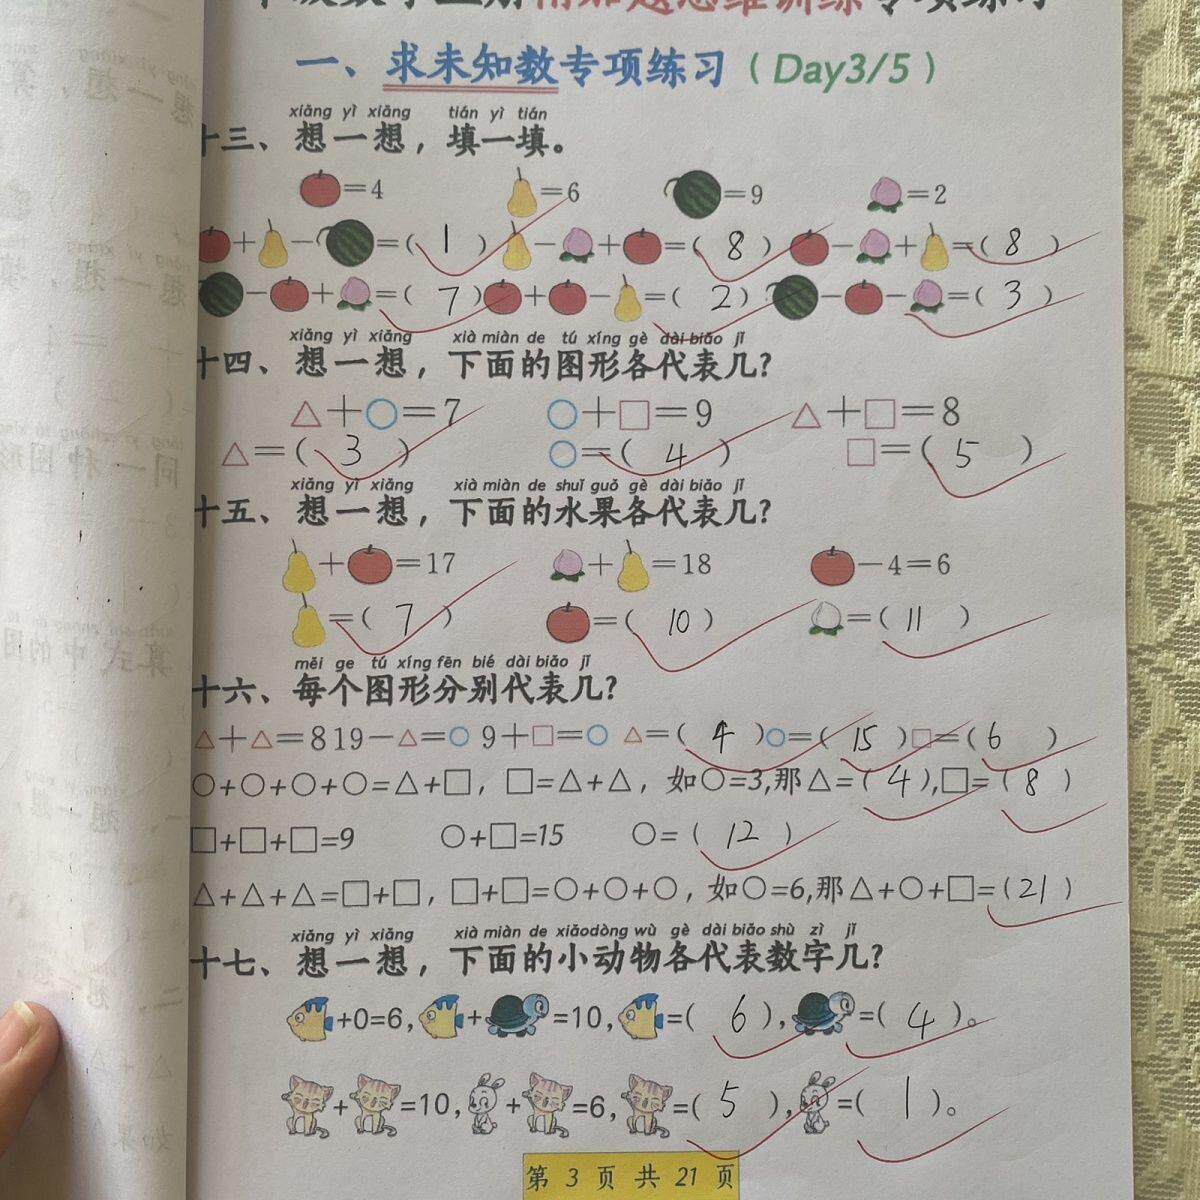 一、求未知数专项练习（Day3/5）
xiǎng yì xiǎng tián yì tián
十三、想一想，填一填。
=4 =6 =9 =2
+ - =( 1 ) - + =( 8 ) - + =( 8 )
- + =( 7 ) + - =( 2 ) - - =( 3 )
xiǎng yì xiǎng xià miàn de tú xíng gè dài biǎo jǐ
十四、想一想，下面的图形各代表几?
△+○=7 ○+□=9 △+□=8
△=( 3 ) ○=( 4 ) □=( 5 )
xiǎng yì xiǎng xià miàn de shuǐ guǒ gè dài biǎo jǐ
十五、想一想，下面的水果各代表几?
+ =17 + =18 -4=6
=( 7 ) =( 10 ) =( 11 )
měi ge tú xíng fēn bié dài biǎo jǐ
十六、每个图形分别代表几?
△+△=8 19-△=○ 9+□=○ △=( 4 )○=( 15 )□=( 6 )
○+○+○+○=△+□，□=△+△，如○=3,那△=( 4 ),□=( 8 )
□+□+□=9 ○+□=15 ○=( 12 )
△+△+△=□+□，□+□=○+○+○，如○=6,那△+○+□=(21)
xiǎng yì xiǎng xià miàn de xiǎo dòng wù gè dài biǎo shù zì jǐ
十七、想一想，下面的小动物各代表数字几?
+0=6, + =10, =( 6 ), =( 4 )。
+ =10, + =6, =( 5 ), =( 1 )。
第 3 页 共 21 页